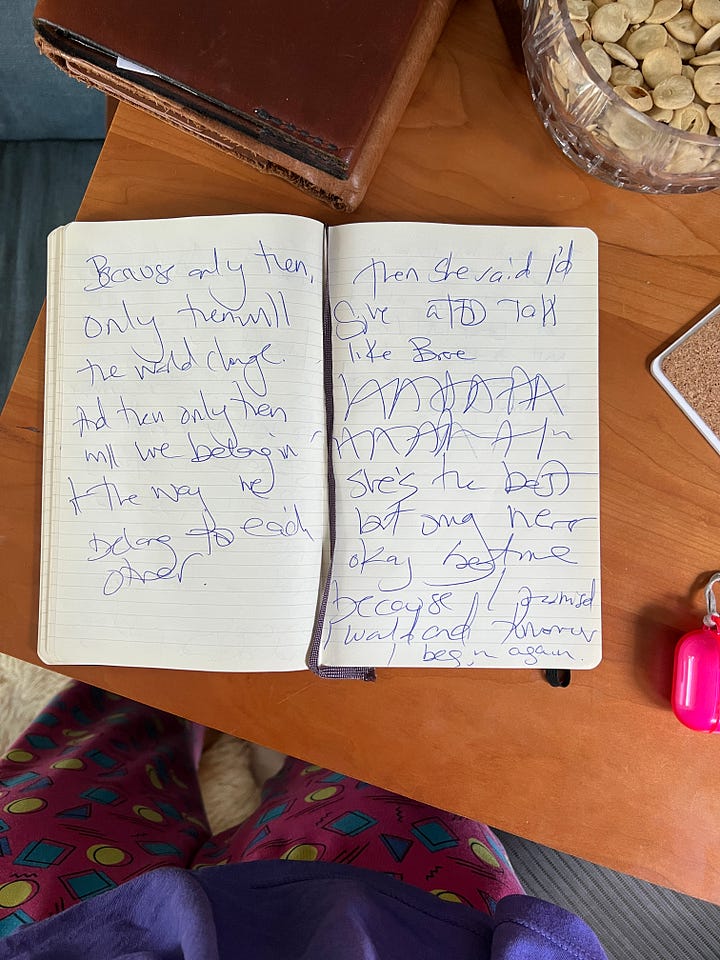 Because only then,
only then will
the world change.
And then only then
will we belong in
the way we
belong to each
other.
then she said I'd
Give a TED Talk
like Brene
she's the best
but omg
okay
because I promised
I would and tomorrow
I begin again.